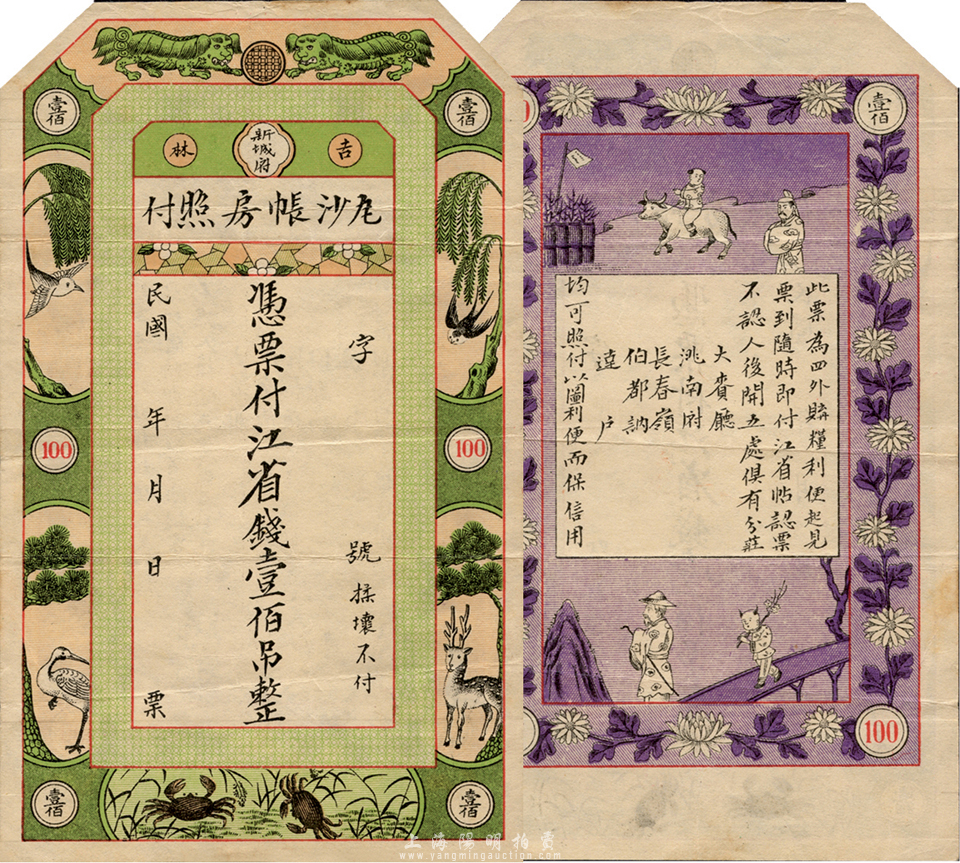 壹佰
壹佰
吉林
新城府
尨沙帳房照付
字
號 揉壞不付
憑票付江省錢壹佰吊整
民國 年 月 日 票
100
100
壹佰
壹佰
壹佰
此票為四外購糧利便起見
票到隨時即付江省帖認票
不認人後開五處俱有分莊
大賚廳
洮南府
長春嶺
伯都訥
達戶
均可照付以圖利便而保信用
100
上海陽明拍賣
www.yangmingauction.com